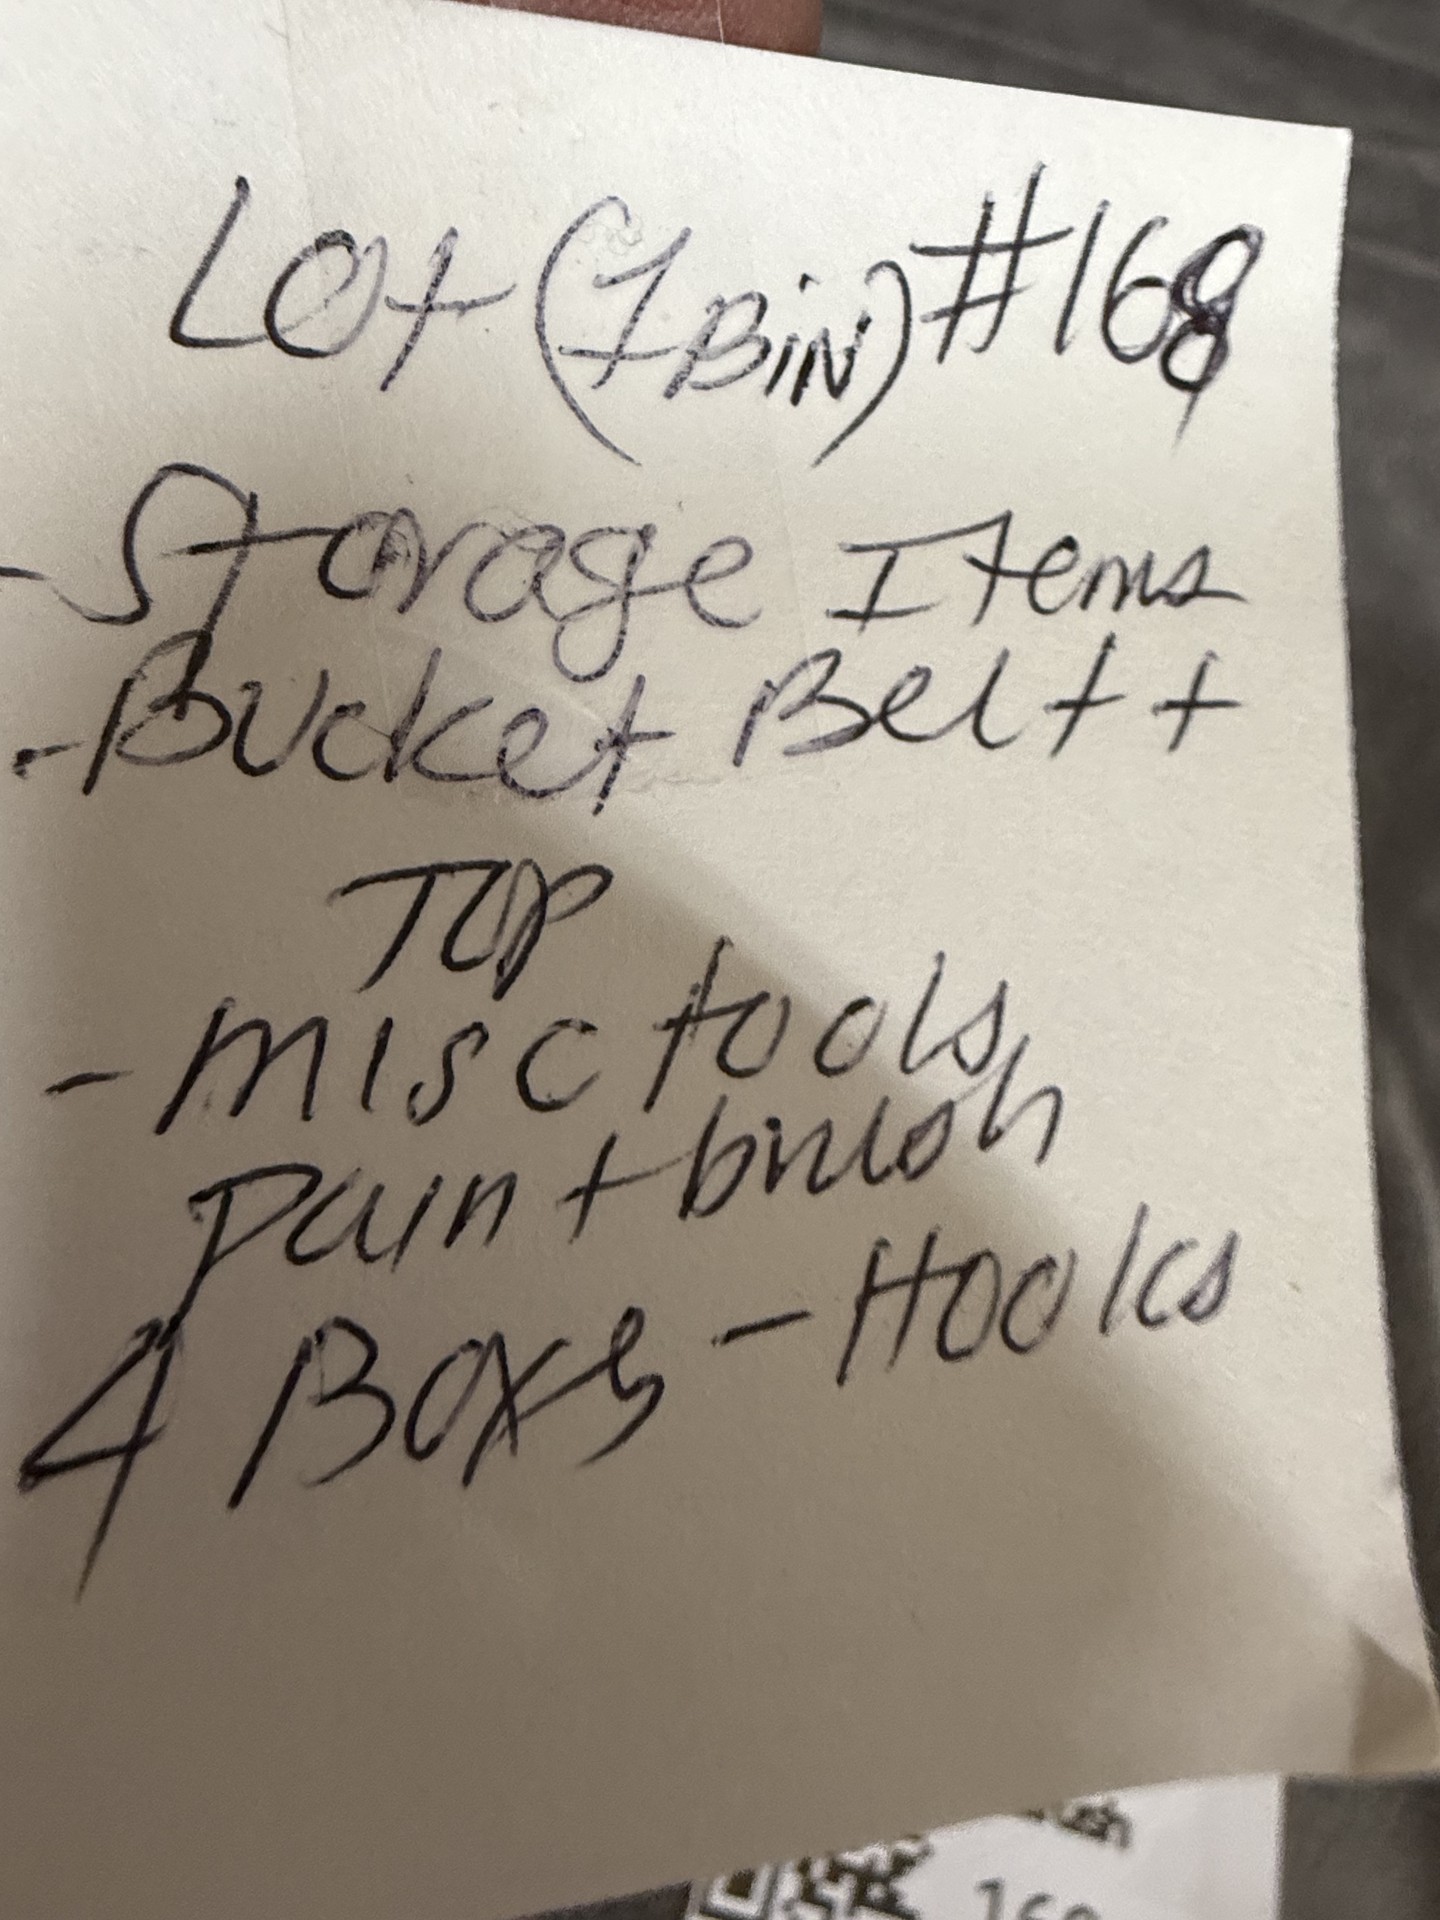 Lot (1 BiN) #168
- Storage Items
- Bucket Belt +
Top
- misc tools
paintbrush
4 Boxes - Hooks